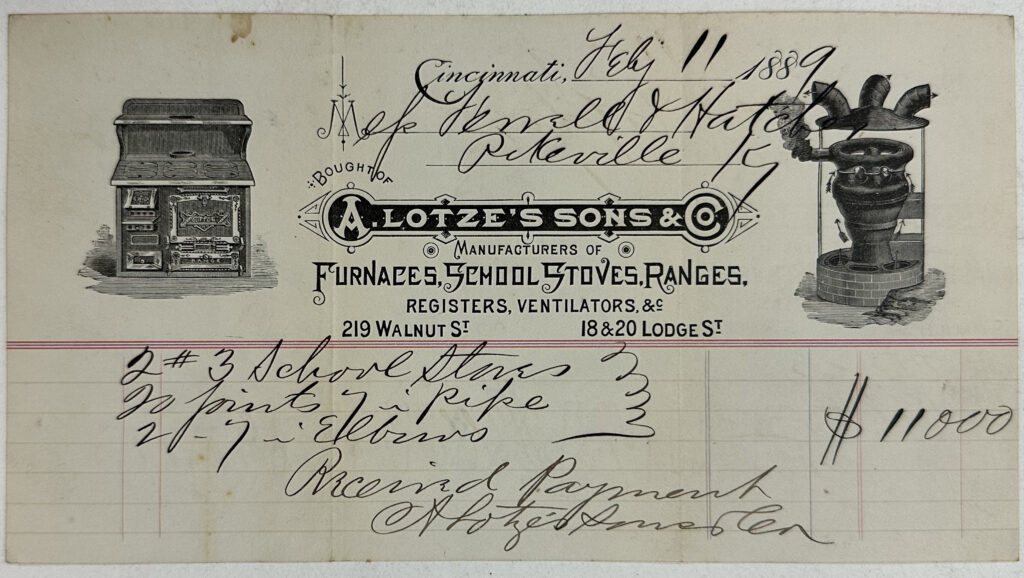 Cincinnati, Feby 11 1889
Mess & Hatcher
Pikeville Ky
BOUGHT OF
A. LOTZE'S SONS & CO.
MANUFACTURERS OF
FURNACES, SCHOOL STOVES, RANGES,
REGISTERS, VENTILATORS, &C
219 WALNUT ST 18 & 20 LODGE ST
2 # 3 School Stoves
20 joints 7 in Pipe
2 - 7 in Elbows $ 11000
Received Payment
A Lotze's Sons & Co